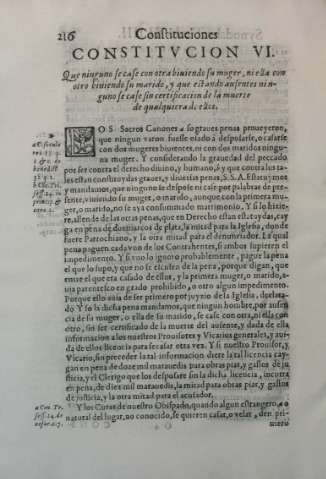 216 Constituciones
CONSTITVCION VI.
Que ninguno se case con otra biuiendo su muger, ni ella con
otro biuiendo su marido, y que estando ausentes nin-
guno se case sin certificacion de la muerte
de qualquiera d'ellos.
LOS Sacros Canones so graues penas proueyeron,
que ningun varon fuesse osado à desposarse, o casarse
con dos mugeres biuientes, ni con dos maridos ningu-
na muger. Y considerando la grauedad del peccado
por ser contra el derecho diuino, y humano, y que contra los ta-
les estan constituydas graues, y diuersas penas, S.S.A. Estatuymos
y mandamos, que ninguno se despose ni case por palabras de pre-
sente, viuiendo su muger, o marido, aunque con la primera mu-
ger, o marido, no se aya consummado matrimonio. Y si lo hizie-
re, allende de las otras penas, que en Derecho estan estatuydas, cay
ga en pena de dos marcos de plata, la mitad para la Iglesia, donde
fuere Parrochiano, y la otra mitad para el denunciador. La qual
pena paguen cada vno de los Contrahentes, si ambos supieren el
impedimento. Y si vno lo ignoro probablemente, pague la pena
el que lo supo, y que no se escuse de la pena, porque digan, que
entre el que era casado de ellos, y la primera muger, o marido, a-
uia parentesco en grado prohibido, o otro algun impedimento.
Porque esto auia de ser primero por juyzio de la Iglesia, declara-
do. Y so la dicha pena mandamos, que ninguno biuiendo, por ausen
cia de su muger, o ella de su marido, se case con otra, ni ella con
otro, sin ser certificado de la muerte del ausente, y dada de ella
informacion a los nuestros Prouisores y Vicarios generales, y aui-
da de ellos licencia para se casar otra vez. Y si nuestro Prouisor, y
Vicario, sin preceder la tal informacion diere la tal licencia cay-
gan en pena de doze mil marauedis para obras pias, y gastos de ju-
sticia, y el Clerigo que los desposare sin la dicha licencia, incurra
en pena, de diez mil marauedis, la mitad para obras pias, y gastos
de justicia, y la otra mitad para el acusador.
Y los Curas de nuestro Obispado, quando algun estrangero, o no
natural del lugar, no conocido, se quieren casar, o velar, den pri-
mero